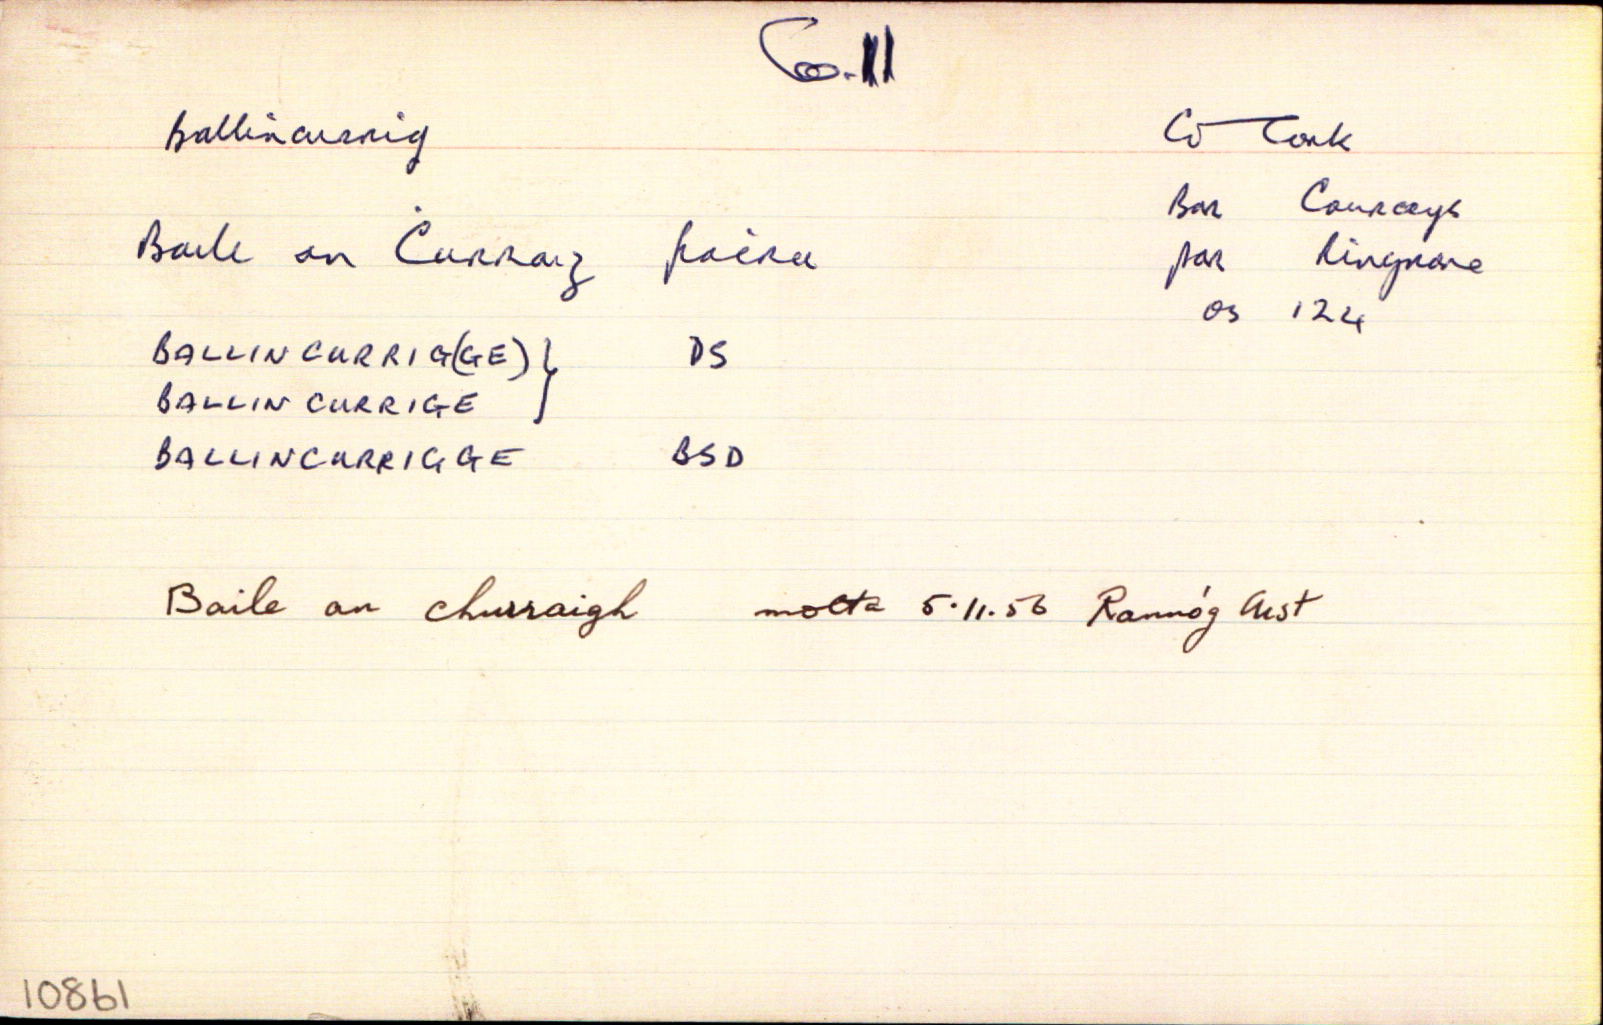 Co. 11
Ballincurrig Co Cork
Bar Courceys
Baile an Ċurraig par Ringrone
OS 124
BALLINCURRIG(GE) } DS
BALLINCURRIGE
BALLINCURRIGGE BSD
Baile an churraigh molta 5.11.56 Rannóg Aist
10861